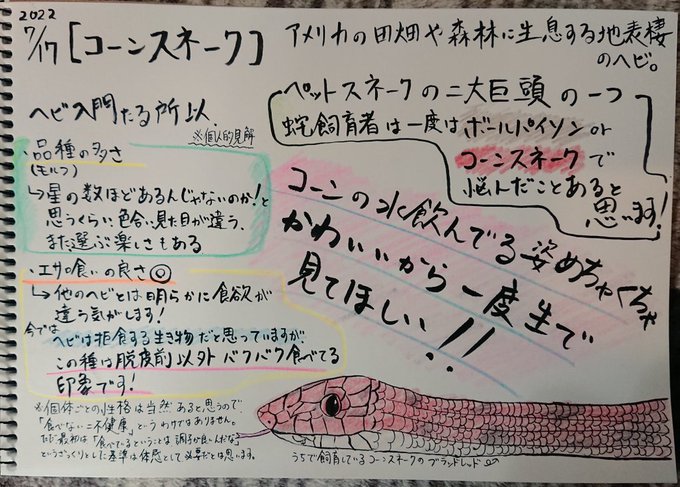 2022
7/17 [コーンスネーク]
アメリカの田畑や森林に生息する地表棲
のヘビ。
ペットスネークの二大巨頭の一つ
蛇飼育者は一度はボールパイソンor
コーンスネークで
悩んだことあると
思います!
ヘビ入門たる所以.
※個人的見解
・品種の多さ
(モルフ)
↳星の数ほどあるんじゃないのか!と
思うくらい色合い見た目が違う、
また選ぶ楽しさもある
・エサ喰いの良さ◎
↳他のヘビとは明らかに食欲が
違う気がします!
今では
ヘビは拒食する生き物だと思っていますが
この種は脱皮前以外バクバク食べてる
印象です!
コーンの水飲んでる姿めちゃくちゃ
かわいいから一度生で
見てほしい!!
※個体ごとの性格は当然あると思うので、
「食べない=不健康」というわけではありません。
ただ最初は「食べているということは調子が良いんだな」
というざっくりとした基準は体感として必要だとは思います。
うちで飼育しているコーンスネークのブラッドレッド